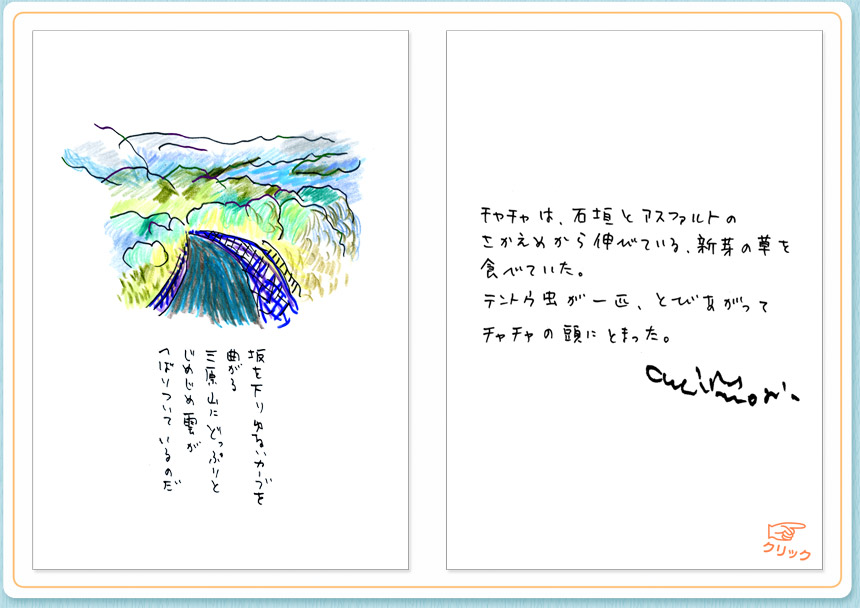 坂を下りゆるいカーブを
曲がる
三原山にどっぷりと
じめじめ雲が
へばりついているのだ
チャチャは、石垣とアスファルトの
さかえめから伸びている、新芽の草を
食べていた。
テントウ虫が一匹、とびあがって
チャチャの頭にとまった。
クリック